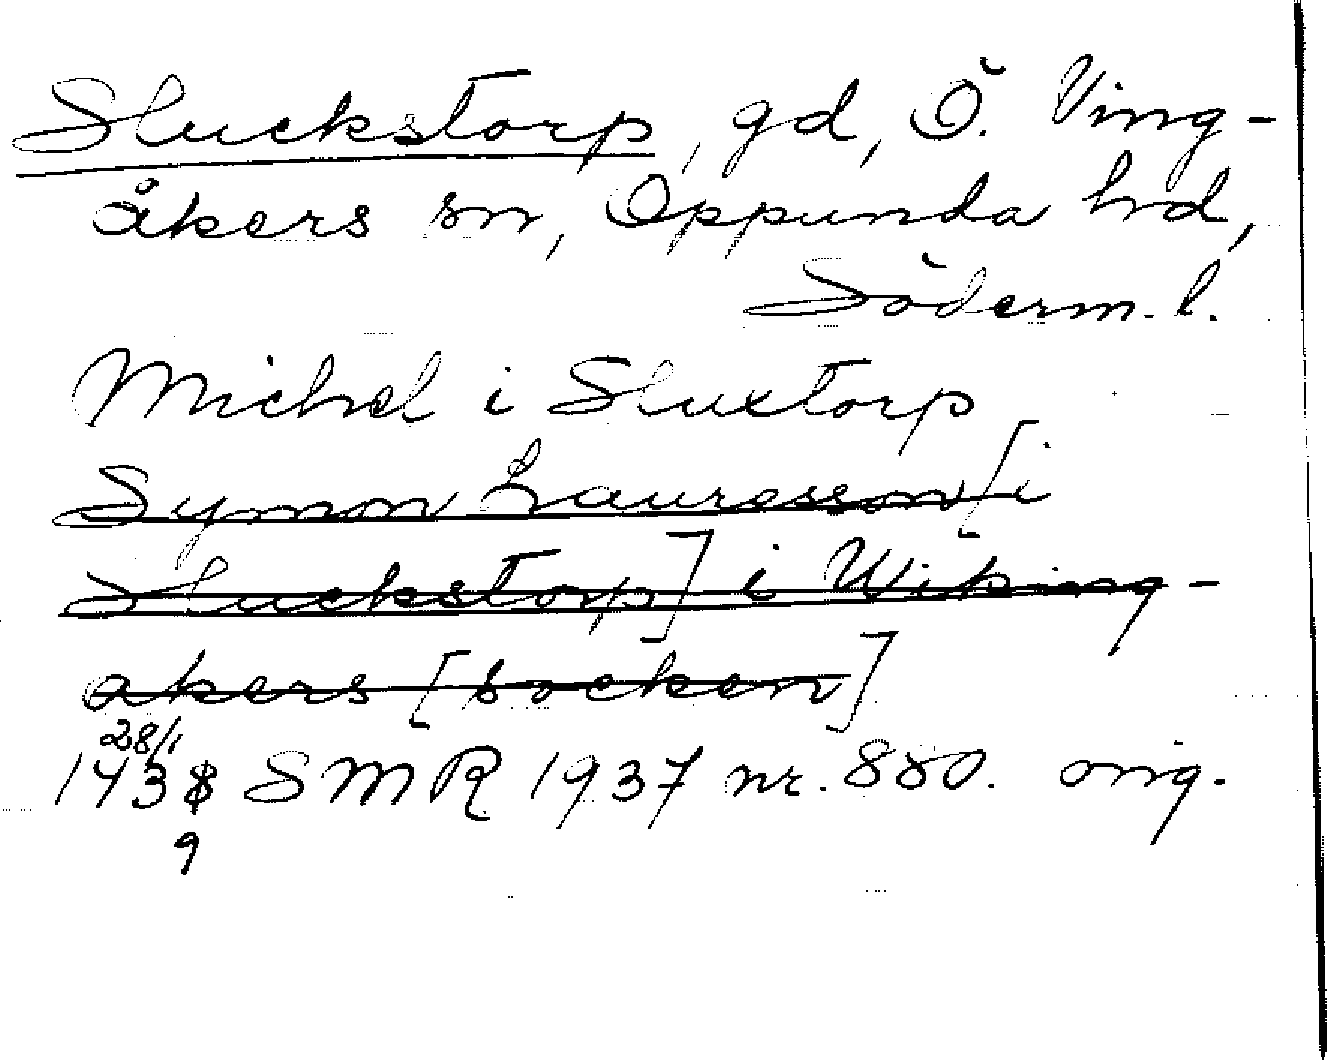 Sluckstorp, gd, Ö. Ving-
åkers sn, Oppunda hd,
Söderm. l.
Michel i Sluxtorp
Symon Lauresson [i
Sluckstorp] i Wiking-
akers [socken]
28/1
1438 SMR 1937 nr. 880. orig.
9